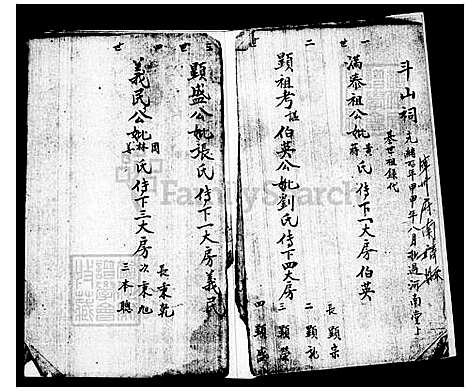 斗山祠
光緒 年甲申年八月
漳州府南靖縣
一世
滿泰祖公妣黃蔣氏傳下一大房伯英
二世
顯祖考諡伯英公妣劉氏傳下四大房
長顯宗
二顯乾
三顯榮
四顯盛
三世
顯盛公妣張氏傳下一大房義民
四世
義民公妣周林姜氏傳下三大房
長秉乾
次秉旭
三本聰
FamilySearch